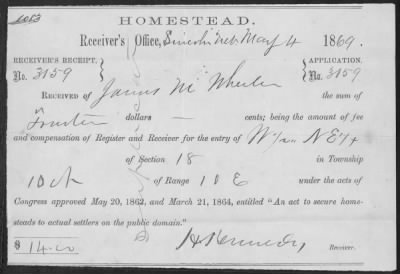 1013
HOMESTEAD.
Receiver's Office, Lincoln Neb May 4 1869.
RECEIVER'S RECEIPT, APPLICATION,
No. 3159 No. 3159
RECEIVED OF James M Wheeler the sum of
Fourteen dollars — cents; being the amount of fee
and compensation of Register and Receiver for the entry of W½ N E¼
of Section 18 in Township
10 N of Range 10 E under the acts of
Congress approved May 20, 1862, and March 21, 1864, entitled "An act to secure home-
steads to actual settlers on the public domain."
$ 14.00 H Kennedy Receiver.